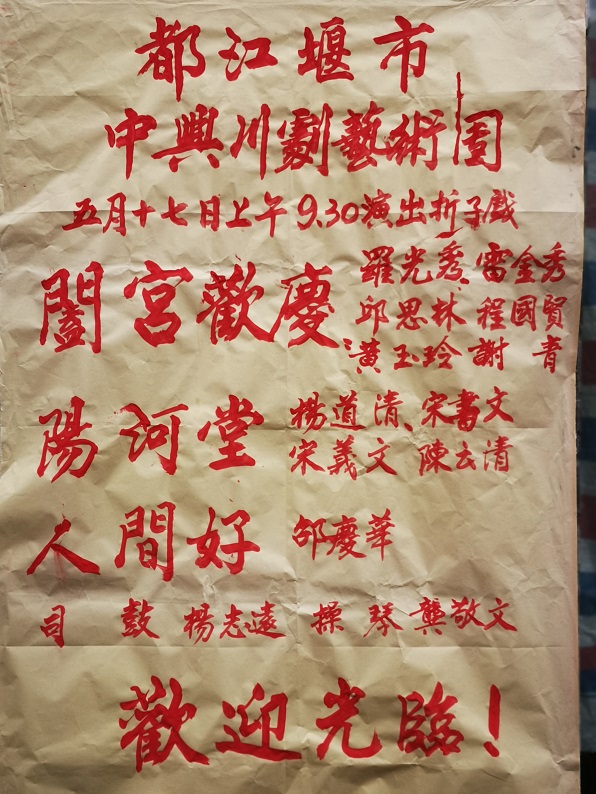 都江堰市
中興川劇藝術團
五月十七日上午9.30演出折子戲
闔宮歡慶
羅光秀、雷金秀
邱思林 程國賢
黃玉玲 謝青
陽河堂
楊道清、宋書文
宋義文 陳云清
人間好 邹慶華
司鼓 楊志遠 操琴 龔敬文
歡迎光臨!